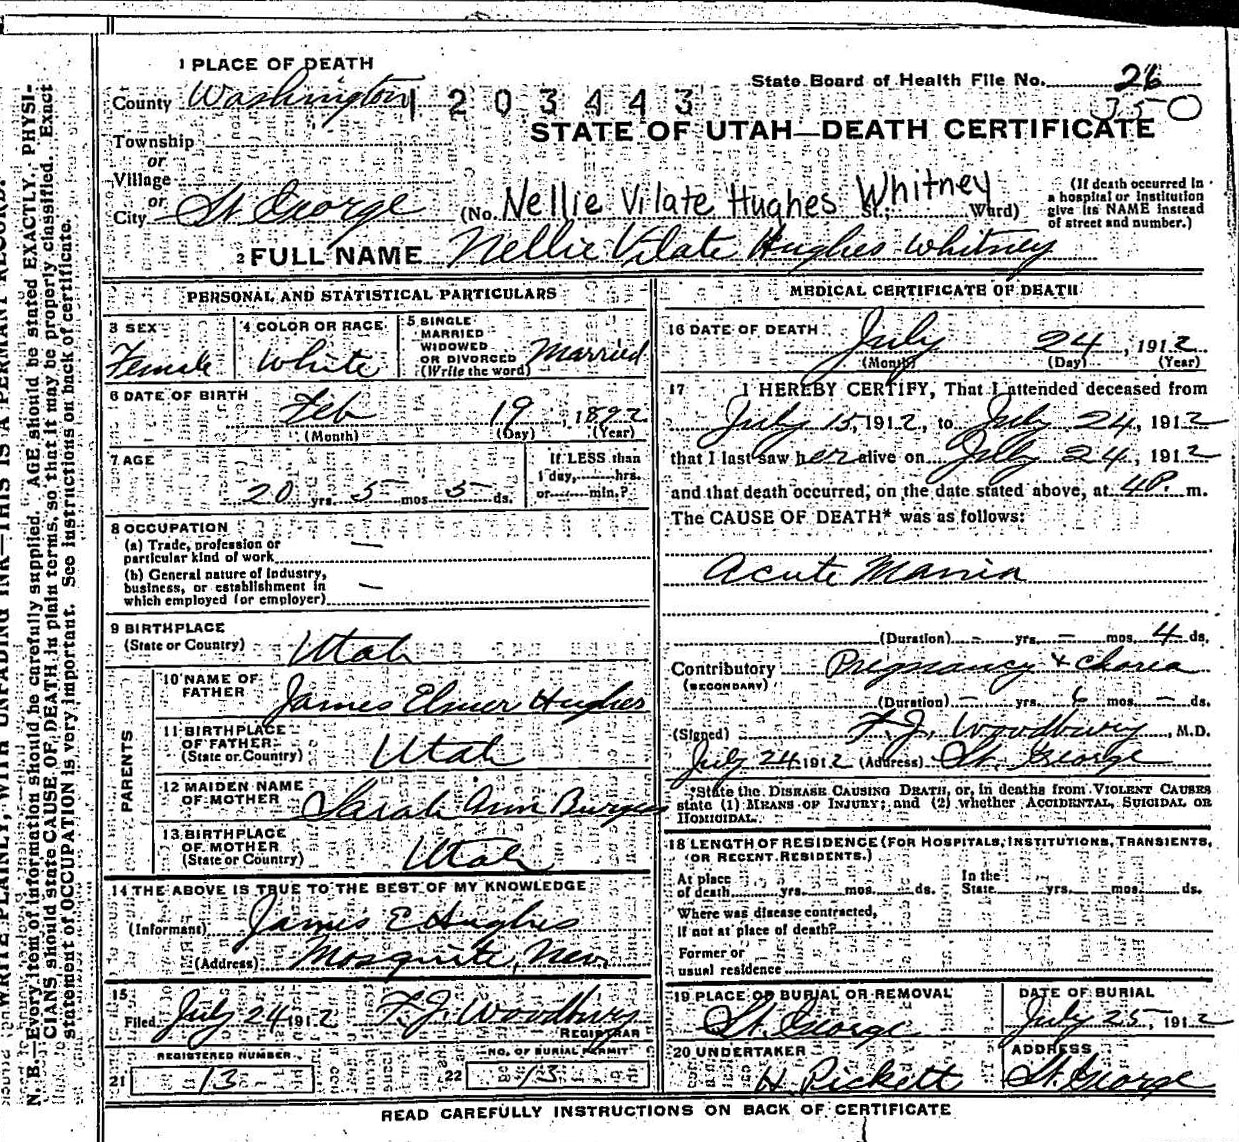 1 PLACE OF DEATH
State Board of Health File No. 26
County Washington
1203443
350
STATE OF UTAH—DEATH CERTIFICATE
Township
or
Village
or
City St George
(No. Nellie Vilate Hughes Whitney St.; Ward)
(If death occurred in
a hospital or institution
give its NAME instead
of street and number.)
2 FULL NAME Nellie Vilate Hughes Whitney
PERSONAL AND STATISTICAL PARTICULARS
3 SEX
Female
4 COLOR OR RACE
White
5 SINGLE
MARRIED
WIDOWED
OR DIVORCED
(Write the word)
Married
6 DATE OF BIRTH
Feb 19, 1892
(Month) (Day) (Year)
7 AGE
20 yrs. 5 mos. 5 ds.
If LESS than
1 day, hrs.
or min.?
8 OCCUPATION
(a) Trade, profession or
particular kind of work —
(b) General nature of industry,
business, or establishment in
which employed (or employer) —
9 BIRTHPLACE
(State or Country) Utah
PARENTS
10 NAME OF
FATHER
James Elmer Hughes
11 BIRTHPLACE
OF FATHER
(State or Country)
Utah
12 MAIDEN NAME
OF MOTHER
Sarah Ann Burgess
13 BIRTHPLACE
OF MOTHER
(State or Country)
Utah
14 THE ABOVE IS TRUE TO THE BEST OF MY KNOWLEDGE
(Informant) James E Hughes
(Address) Mosquite, Nev.
15
Filed July 24 1912 F. J. Woodbury
REGISTRAR
REGISTERED NUMBER
21 13
NO. OF BURIAL PERMIT
22 13
MEDICAL CERTIFICATE OF DEATH
16 DATE OF DEATH
July 24, 1912
(Month) (Day) (Year)
17 I HEREBY CERTIFY, That I attended deceased from
July 15, 1912, to July 24, 1912
that I last saw her alive on July 24, 1912
and that death occurred, on the date stated above, at 4 P. m.
The CAUSE OF DEATH* was as follows:
Acute Mania
(Duration) — yrs. — mos. 4 ds.
Contributory Pregnancy & Chorea
(SECONDARY)
(Duration) — yrs. 6 mos. — ds.
(Signed) F. J. Woodbury, M.D.
July 24 1912 (Address) St. George
*State the DISEASE CAUSING DEATH, or, in deaths from VIOLENT CAUSES
state (1) MEANS OF INJURY; and (2) whether ACCIDENTAL, SUICIDAL OR
HOMICIDAL.
18 LENGTH OF RESIDENCE (FOR HOSPITALS, INSTITUTIONS, TRANSIENTS,
OR RECENT RESIDENTS.)
At place
of death yrs. mos. ds.
In the
State yrs. mos. ds.
Where was disease contracted,
if not at place of death?
Former or
usual residence
19 PLACE OF BURIAL OR REMOVAL
St. George
DATE OF BURIAL
July 25, 1912
20 UNDERTAKER
H Pickett
ADDRESS
St. George
READ CAREFULLY INSTRUCTIONS ON BACK OF CERTIFICATE
WRITE PLAINLY, WITH UNFADING INK—THIS IS A PERMANENT RECORD.
N. B.—Every item of information should be carefully supplied. AGE should be stated EXACTLY. PHYSI-
CIANS should state CAUSE OF DEATH in plain terms, so that it may be properly classified. Exact
statement of OCCUPATION is very important. See instructions on back of certificate.